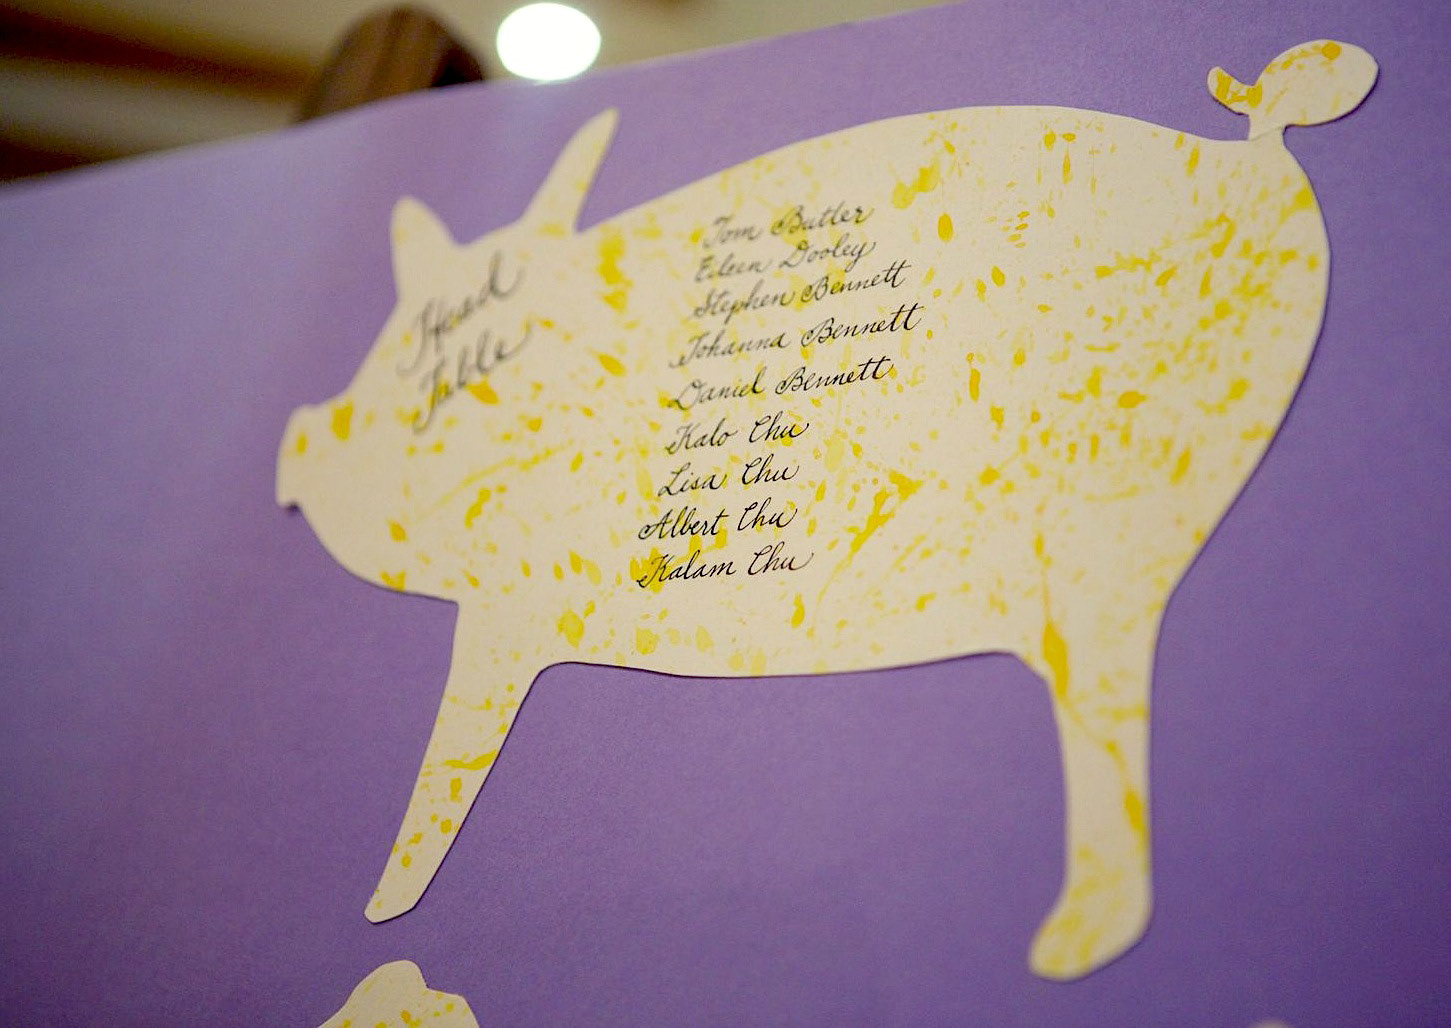 Head
Table
Tom Butler
Eileen Dooley
Stephen Bennett
Johanna Bennett
Daniel Bennett
Kalo Chu
Lisa Chu
Albert Chu
Kalam Chu